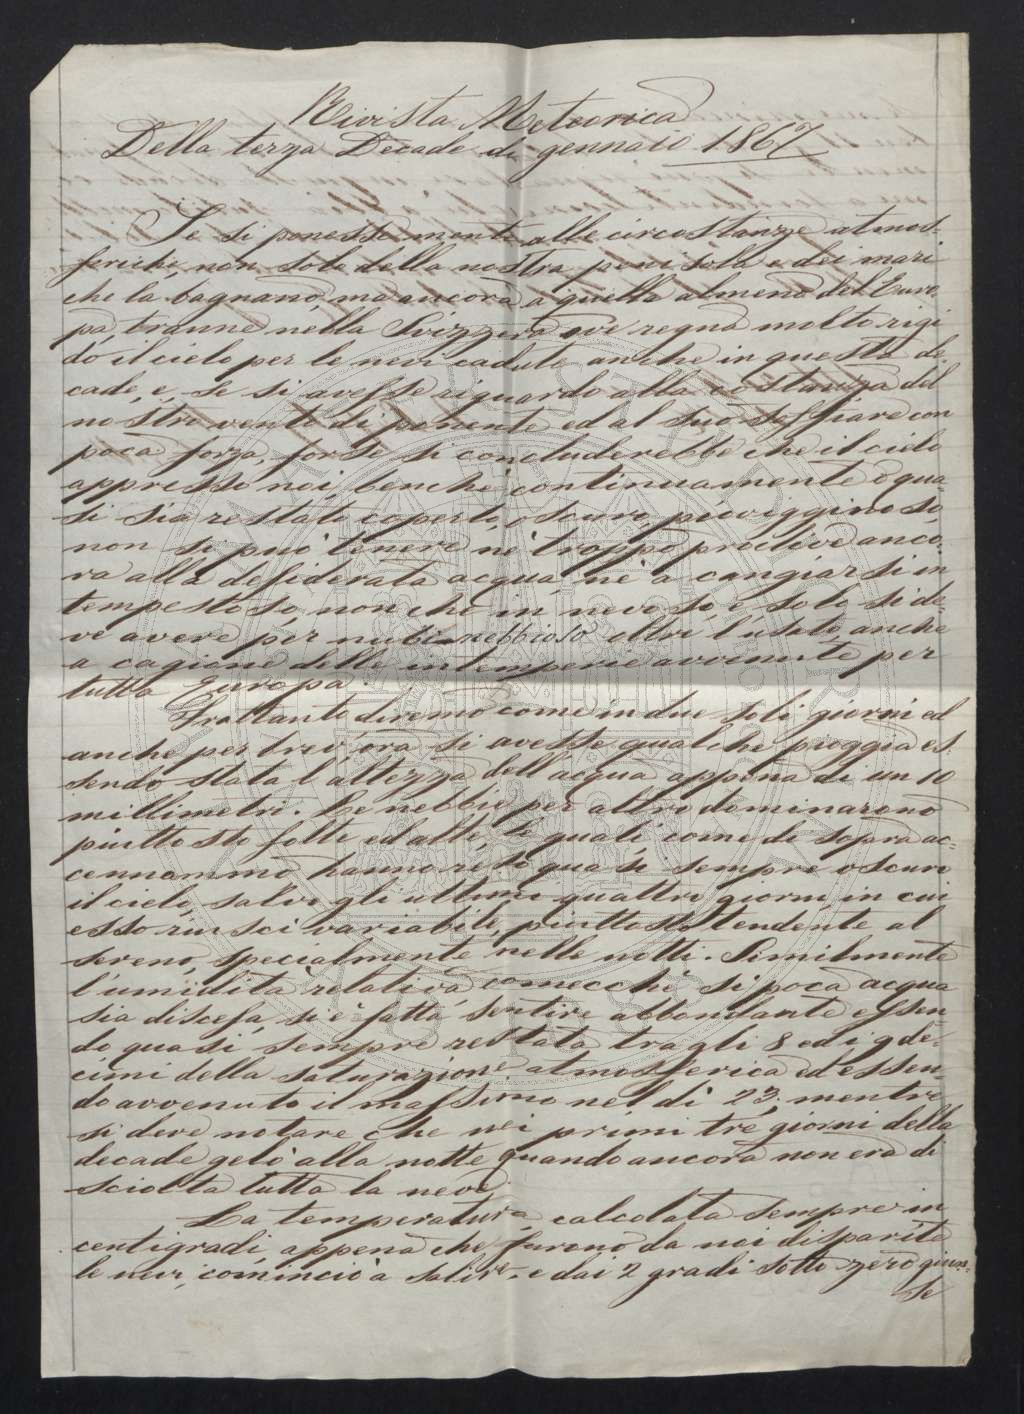 Rivista Meteorica
Della terza Decade di gennaio 1867
Se si ponesse mente alle circostanze atmos-
feriche, non solo della nostra penisola e dei mari
che la bagnano, ma ancora a quella almeno dell'Euro-
pa, tranne nella Svizzera ove regna molto rigi
do il cielo per le nevi cadute anche in questa de-
cade, e, se si avesse riguardo alla costanza del
nostro vento di ponente ed al suo soffiare con
poca forza, forse si concluderebbe che il cielo
appresso noi, benchè continuamente o qua-
si sia restato coperto, oscuro, piovigginoso,
non si può tenere nè troppo proclive anco-
ra alla desiderata acqua, nè a cangiarsi in
tempestoso, non che in nevoso, e solo si de-
ve avere per nubi nebbioso oltre l'usato, anche
a cagione delle intemperie avvenute per
tutta Europa.
Frattanto diremo come in due soli giorni ed
anche per brev'ora si avesse qualche pioggia es
sendo stata l'altezza dell'acqua appena di un 10
millimetri. Le nebbie per altro dominarono
piuttosto folte ed alte, le quali come di sopra ac-
cennammo hanno reso quasi sempre oscuro
il cielo, salvo gli ultimi quattro giorni in cui
esso riuscì variabile, piuttosto tendente al
sereno, specialmente nelle notti. Similmente
l'umidità relativa comecchè sì poca acqua
sia discesa, si è fatta sentire abbondante essen-
do quasi sempre restata tra gli 8 ed i 9 de-
cimi della saturazione atmosferica ed essen-
do avvenuto il massimo nel dì 23; mentre
si deve notare che nei primi tre giorni della
decade gelò alla notte quando ancora non era di
sciolta tutta la neve.
La temperatura, calcolata sempre in
centigradi, appena che furono da noi disparite
le nevi, cominciò a salire e dai 2 gradi sotto zero giun-
se